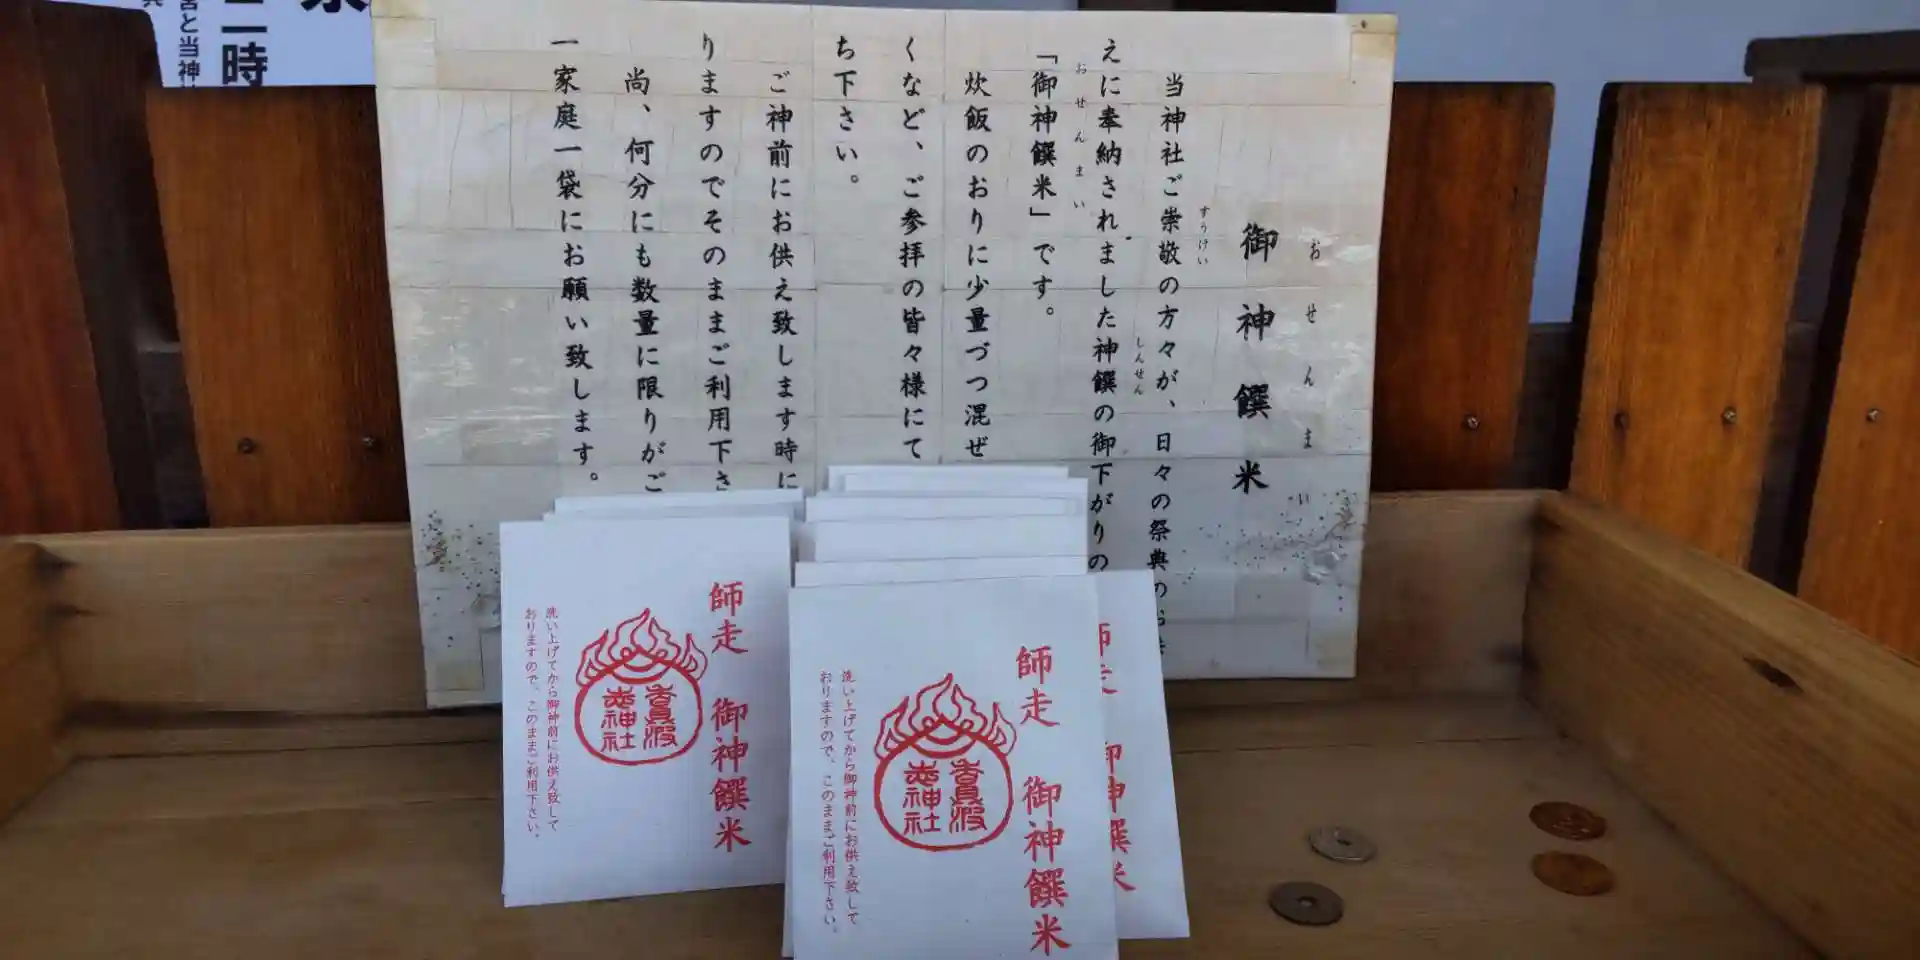 御神饌米
おせんまい
当神社ご崇敬の方々が、日々の祭典のお
すうけい
えに奉納されました神饌の御下がりの
しんせん
「御神饌米」です。
おせんまい
炊飯のおりに少量づつ混ぜ
くなど、ご参拝の皆々様にて
ち下さい。
ご神前にお供え致します時に
りますのでそのままご利用下さ
尚、何分にも数量に限りがご
一家庭一袋にお願い致します。
二時
宮と当神
師走 御神饌米
神社
洗い上げてから御神前にお供え致して
おりますので、このままご利用下さい。
師走 御神饌米
神社
洗い上げてから御神前にお供え致して
おりますので、このままご利用下さい。
師走 御神饌米